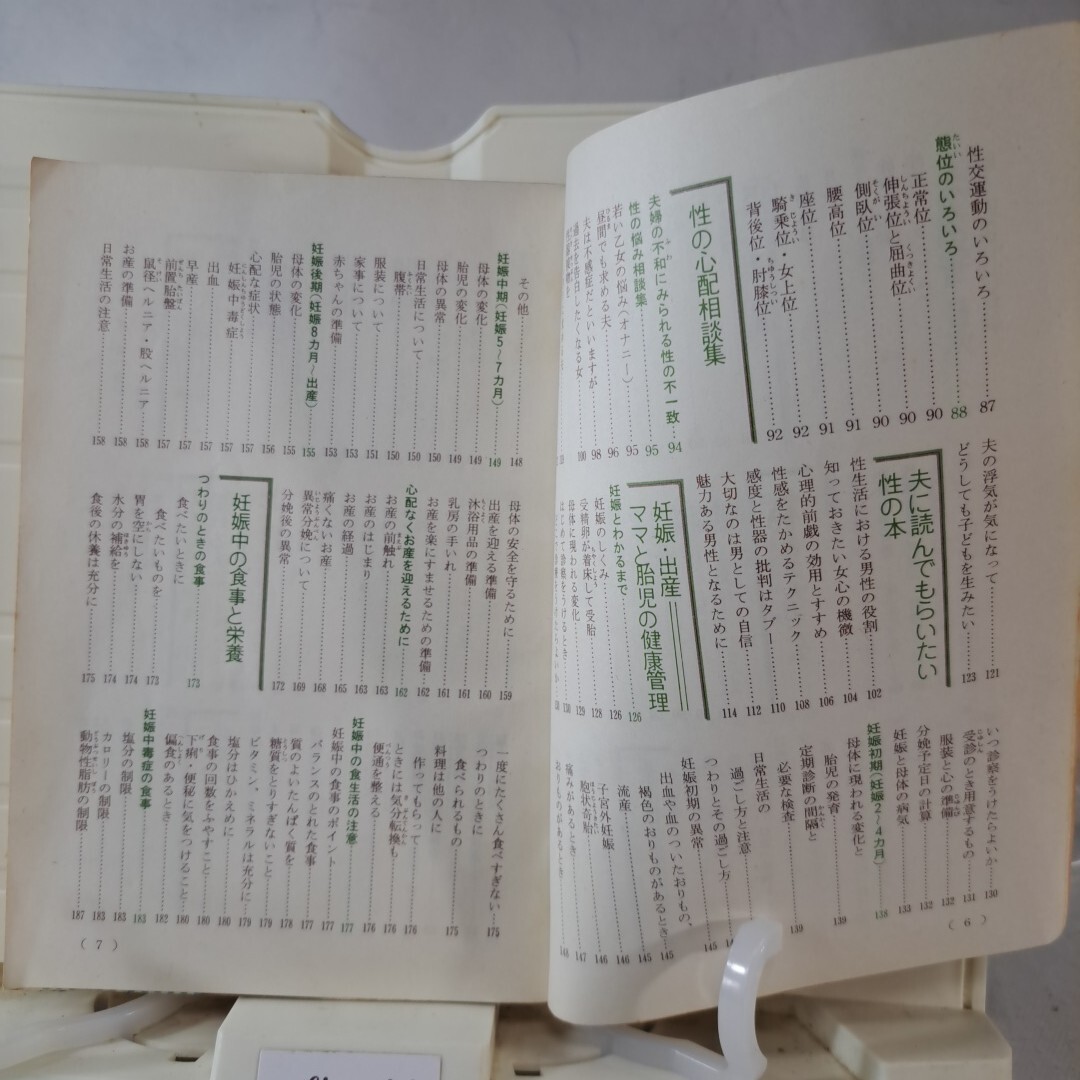 性交運動のいろいろ 87
態位のいろいろ 88
正常位 90
伸張位と屈曲位 90
側臥位 90
腰高位 91
座位 91
騎乗位・女上位 92
背後位・肘膝位 92
性の心配相談集
夫婦の不和にみられる性の不一致 94
性の悩み相談集 95
若い乙女の悩み(オナニー) 95
昼間でも求める夫 96
夫は不感症だといいますが 98
過去を告白したくなる女 100
夫の浮気が気になって 121
どうしても子どもを生みたい 123
夫に読んでもらいたい
性の本
性生活における男性の役割 102
知っておきたい女心の機微 104
心理的前戯の効用とすすめ 106
性感をたかめるテクニック 108
感度と性器の批判はタブー 110
大切なのは男としての自信 112
魅力ある男性となるために 114
妊娠・出産
ママと胎児の健康管理
妊娠とわかるまで 126
妊娠のしくみ 126
受精卵が着床して受胎 128
母体に現われる変化 129
はじめて診察をうけるとき 130
いつ診察をうけたらよいか 130
受診のとき用意するもの 131
服装と心の準備 132
分娩予定日の計算 132
妊娠と母体の病気 133
妊娠初期(妊娠2~4カ月) 138
母体に現われる変化と
胎児の発育 139
定期診断の間隔と
必要な検査 139
日常生活の
過ごし方と注意
つわりとその過ごし方 145
妊娠初期の異常 145
出血や血のついたおりもの、
褐色のおりものがあるとき 145
流産 146
子宮外妊娠 146
胞状奇胎 147
痛みがあるとき 148
おりものがあるとき
( 6 )
その他 148
妊娠中期(妊娠5~7カ月) 149
母体の変化 149
胎児の変化 149
母体の異常 150
日常生活について 150
腹帯 150
服装について 151
家事について 153
赤ちゃんの準備 153
妊娠後期(妊娠8カ月~出産) 155
母体の変化 155
胎児の状態 156
心配な症状 157
妊娠中毒症 157
出血 157
早産 157
前置胎盤 157
鼠径ヘルニア・股ヘルニア 158
お産の準備 158
日常生活の注意 158
母体の安全を守るために 159
出産を迎える準備 160
沐浴用品の準備 161
乳房の手いれ 161
お産を楽にすませるための準備 162
心配なくお産を迎えるために 162
お産の前触れ 163
お産のはじまり 163
お産の経過 165
痛くないお産 168
異常分娩について 169
分娩後の異常 172
妊娠中の食事と栄養
つわりのときの食事 173
食べたいときに
食べたいものを 173
胃を空にしない 174
水分の補給を 174
食後の休養は充分に 175
一度にたくさん食べすぎない 175
つわりのときに
食べられるもの 175
料理は他の人に
作ってもらって 176
ときには気分転換も 176
便通を整える 176
妊娠中の食生活の注意 177
妊娠中の食事のポイント 177
バランスのとれた食事 177
質のよいたんぱく質を 178
糖質をとりすぎないこと 178
ビタミン、ミネラルは充分に 179
塩分はひかえめに 179
食事の回数をふやすこと 180
下痢・便秘に気をつけること 180
偏食のあるとき 182
妊娠中毒症の食事 183
塩分の制限 183
カロリーの制限 183
動物性脂肪の制限 187
( 7 )